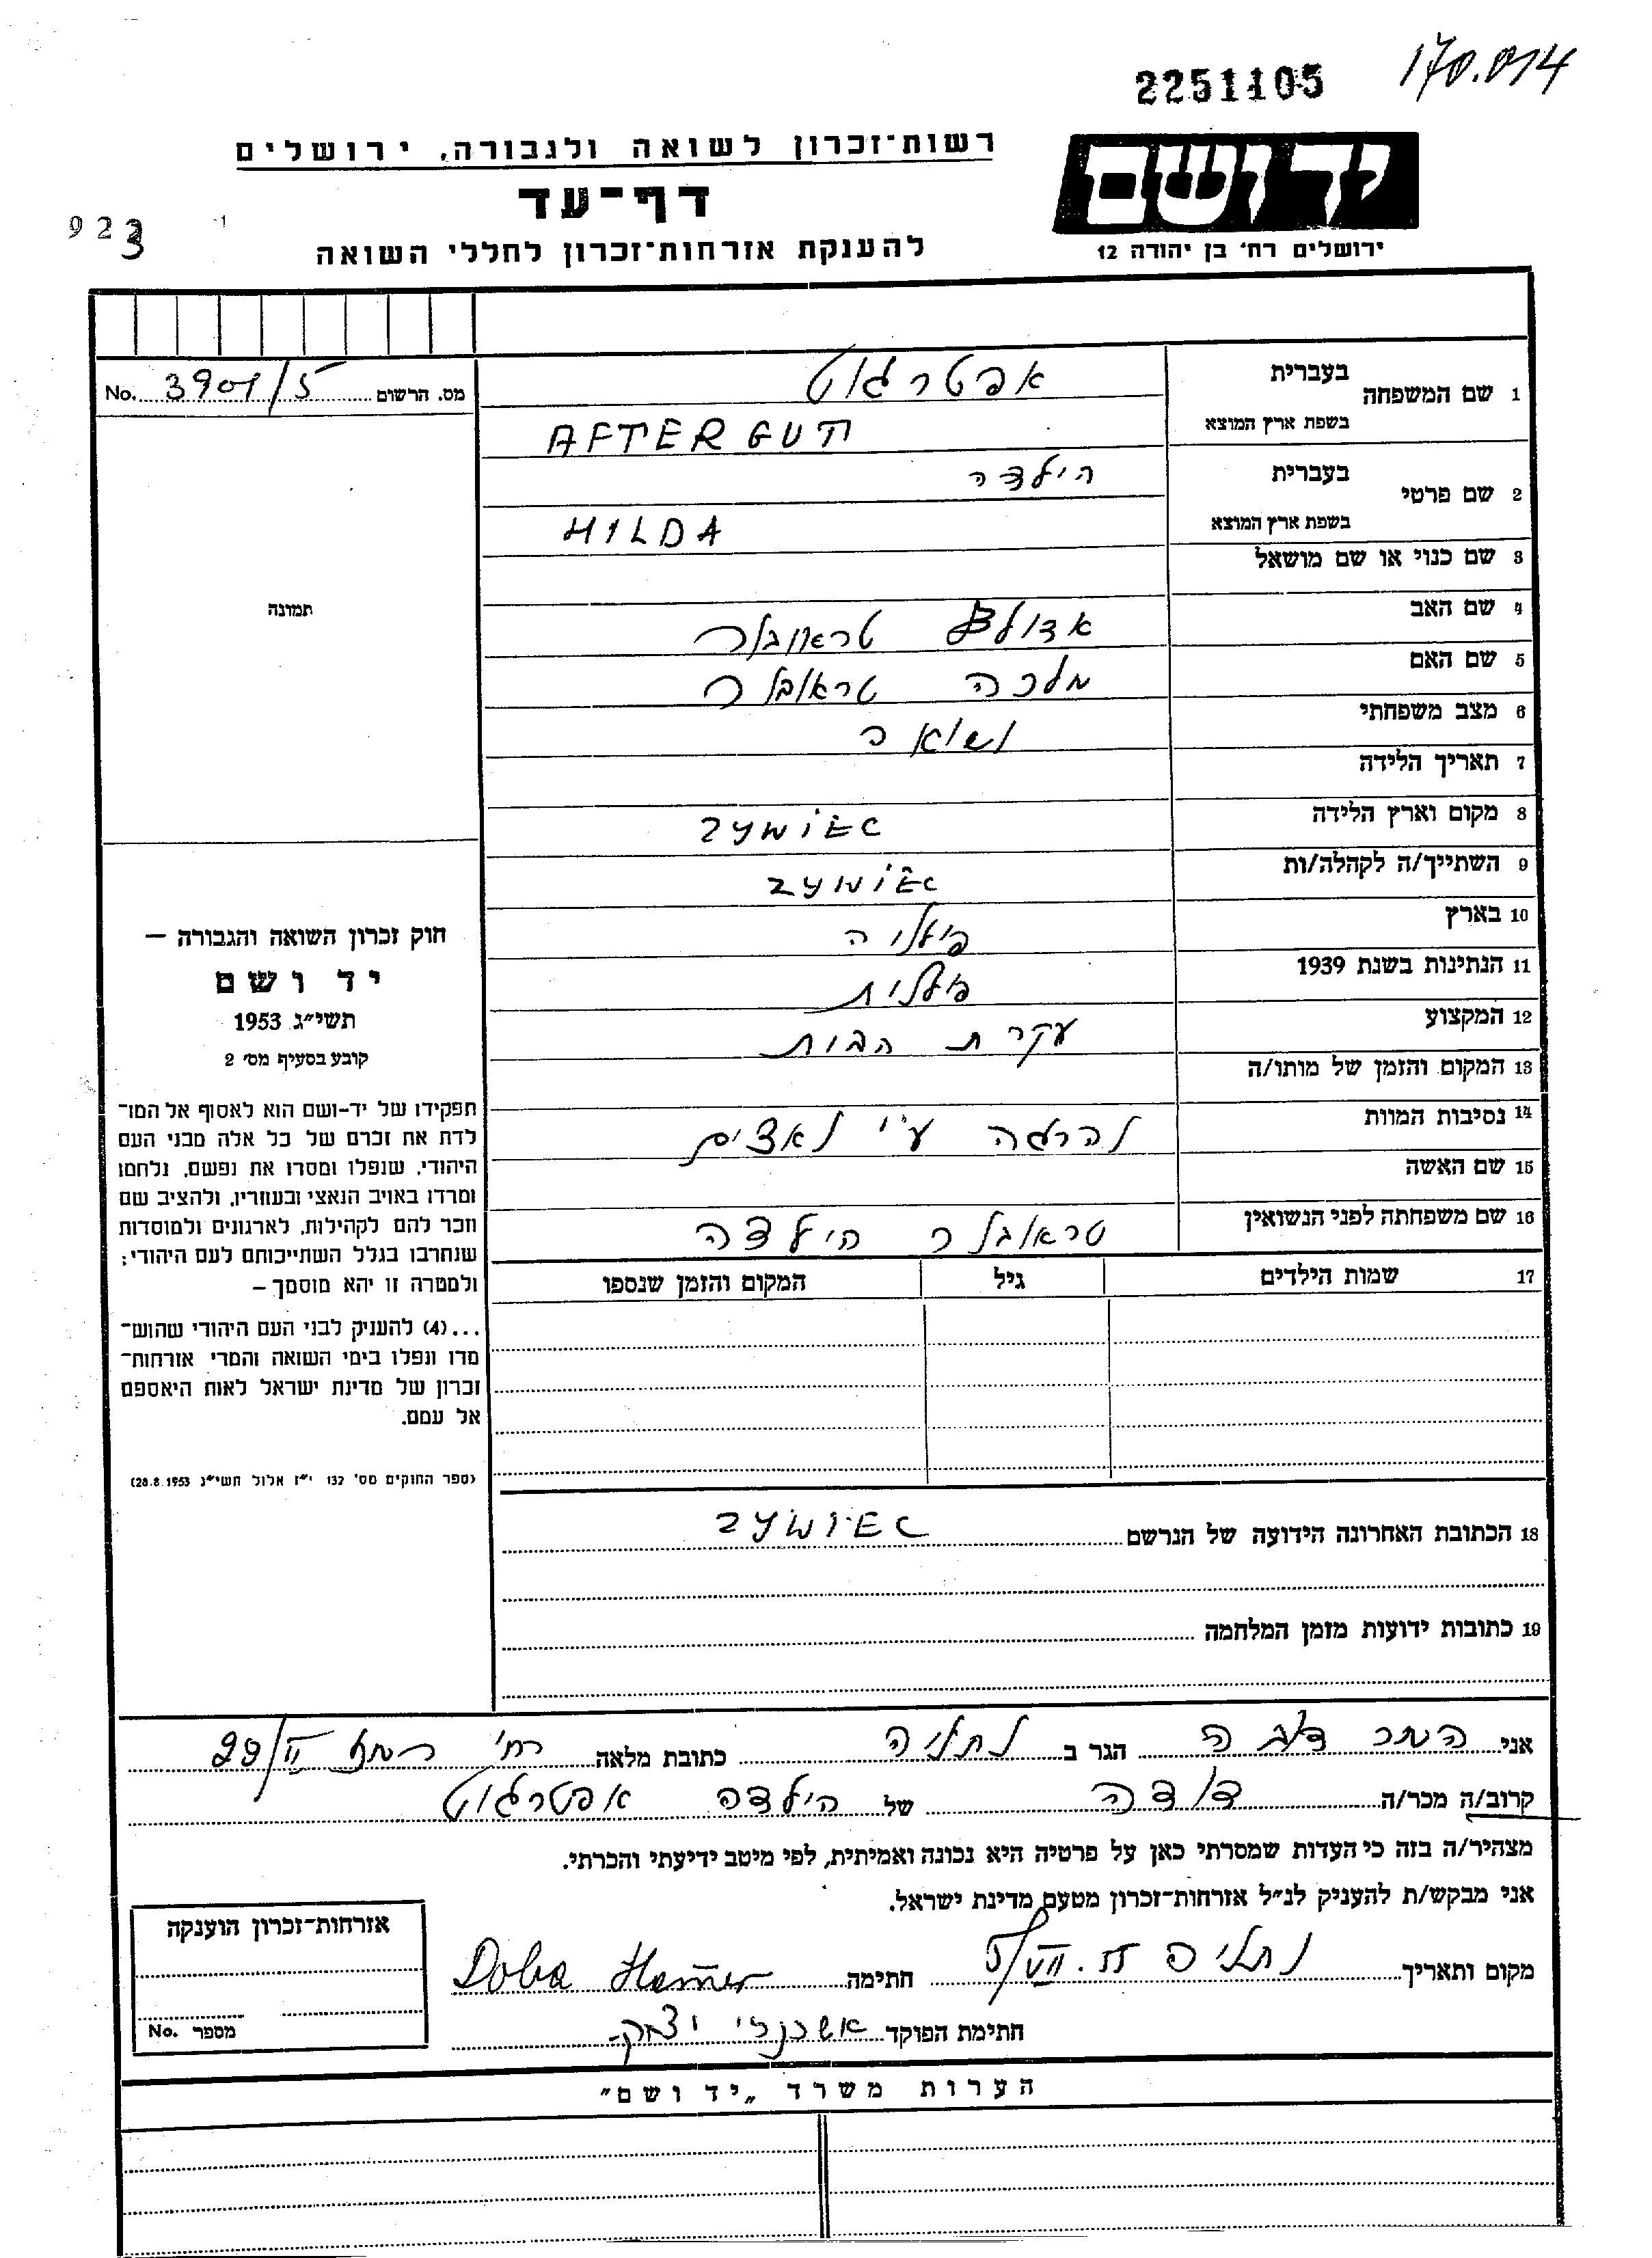 2251105
170.014
יד ושם
ירושלים רח׳ בן יהודה 12
רשות־זכרון לשואה ולגבורה, ירושלים
דף־עד
להענקת אזרחות־זכרון לחללי השואה
923
מס. הרשום 3901/5 No.
1 שם המשפחה בעברית אפטרגוט
בשפת ארץ המוצא AFTERGUT
2 שם פרטי בעברית הילדה
בשפת ארץ המוצא HILDA
3 שם כנוי או שם מושאל
4 שם האב אדולף
5 שם האם מלכה
6 מצב משפחתי נשואה
7 תאריך הלידה
8 מקום וארץ הלידה ZYWIEC
9 השתייך/ה לקהלה/ות ZYWIEC
10 בארץ פולניה
11 הנתינות בשנת 1939 פולנית
12 המקצוע עקרת הבית
13 המקום והזמן של מותו/ה
14 נסיבות המוות נהרגה ע״י נאצים
15 שם האשה
16 שם משפחתה לפני הנשואין הילדה
17 שמות הילדים גיל המקום והזמן שנספו
18 הכתובת האחרונה הידועה של הנרשם ZYWIEC
19 כתובות ידועות מזמן המלחמה
תמונה
חוק זכרון השואה והגבורה —
יד ושם
תשי״ג 1953
קובע בסעיף מס׳ 2
תפקידו של יד-ושם הוא לאסוף אל המו־
לדת את זכרם של כל אלה מבני העם
היהודי, שנפלו ומסרו את נפשם, נלחמו
ומרדו באויב הנאצי ובעוזריו, ולהציב שם
וזכר להם לקהילות, לארגונים ולמוסדות
שנחרבו בגלל השתייכותם לעם היהודי;
ולמטרה זו יהא מוסמך —
...(4) להעניק לבני העם היהודי שהוש־
מדו ונפלו בימי השואה והמרי אזרחות־
זכרון של מדינת ישראל לאות היאספם
אל עמם.
(ספר החוקים מס׳ 132 י״ז אלול תשי״ג 28.8.1953)
אני המר דובה הגר ב נתניה כתובת מלאה רח׳ 29/II
קרוב/ה מכר/ה דודה של הילדה אפטרגוט
מצהיר/ה בזה כי העדות שמסרתי כאן על פרטיה היא נכונה ואמיתית, לפי מיטב ידיעתי והכרתי.
אני מבקש/ת להעניק לנ״ל אזרחות־זכרון מטעם מדינת ישראל.
מקום ותאריך נתניה חתימה Doba Hamer
חתימת הפוקד אשכנזי יצחק
אזרחות־זכרון הוענקה
מספר No.
הערות משרד „יד ושם״